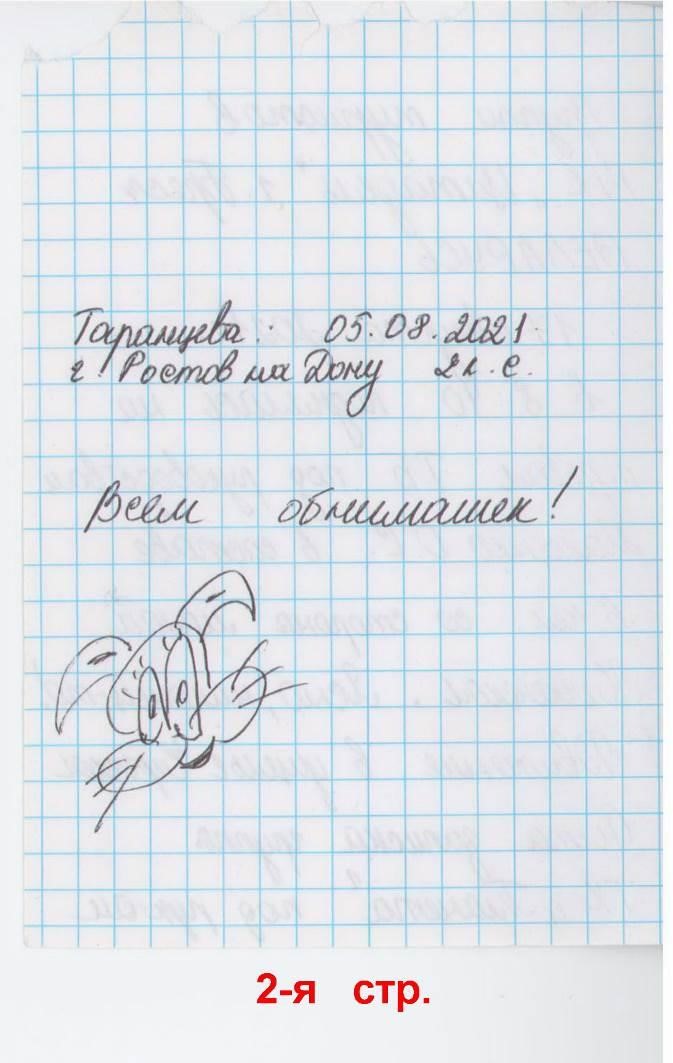 Таранцева: 05.08.2021.
г. Ростов на Дону 2 к. с.
Всем обнимашек!
2-я стр.